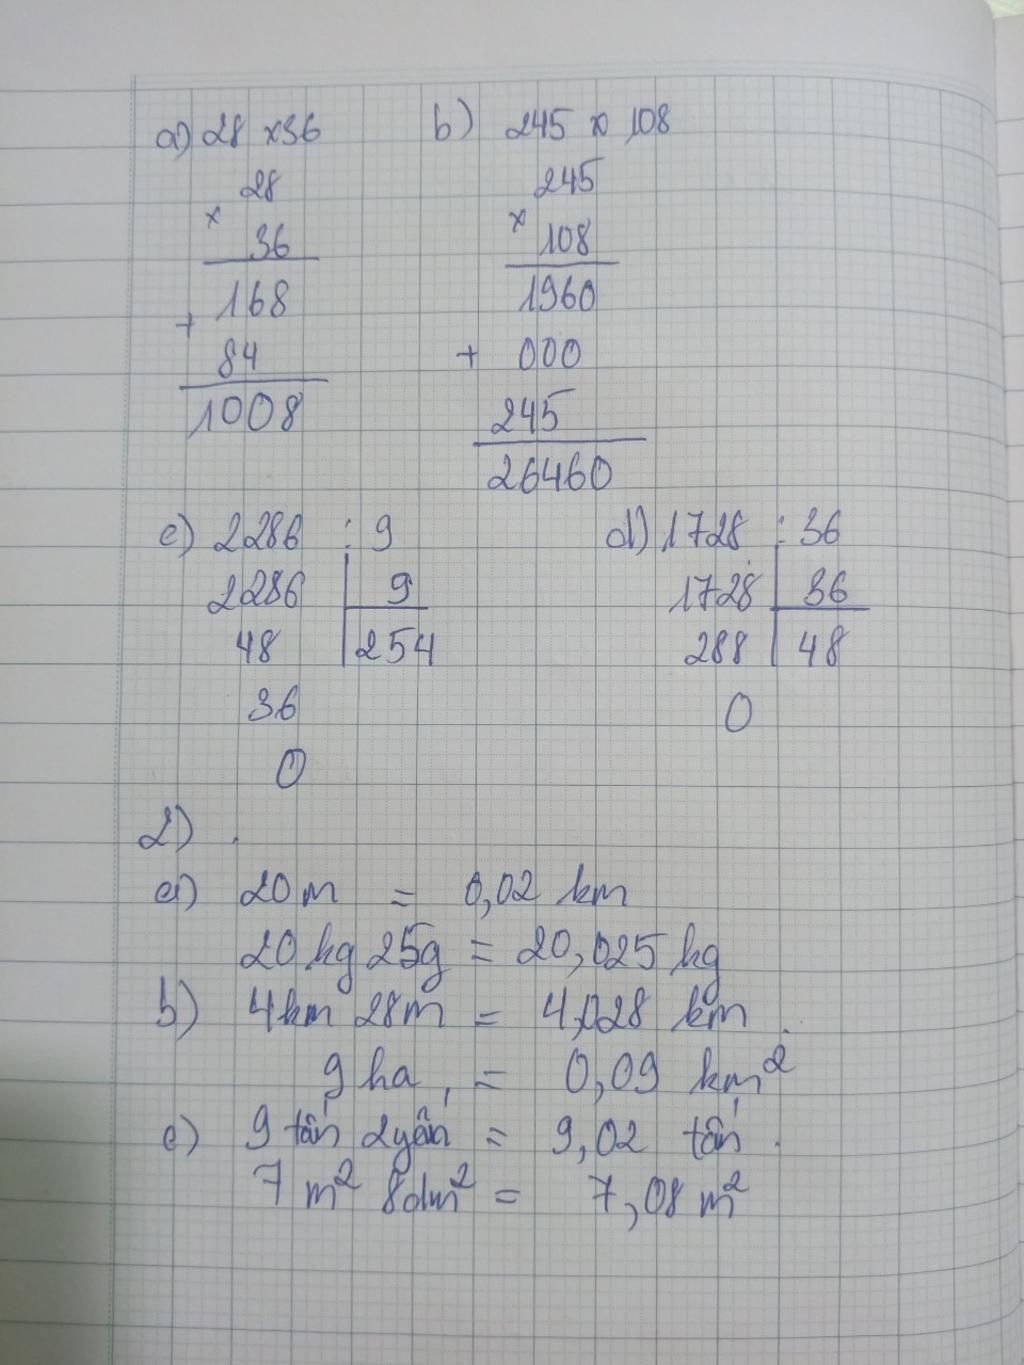 a) 28 x 36
28
x
36
168
+
84
1008
b) 245 x 108
245
x
108
1960
+ 000
245
26460
c) 2286 : 9
2286 9
48 254
36
0
d) 1728 : 36
1728 36
288 48
0
2)
a) 20 m = 0,02 km
20 kg 25g = 20,025 kg
b) 4km 28m = 4,028 km
9 ha = 0,09 km²
c) 9 tấn 2 yến = 9,02 tấn
7 m² 8dm² = 7,08 m²